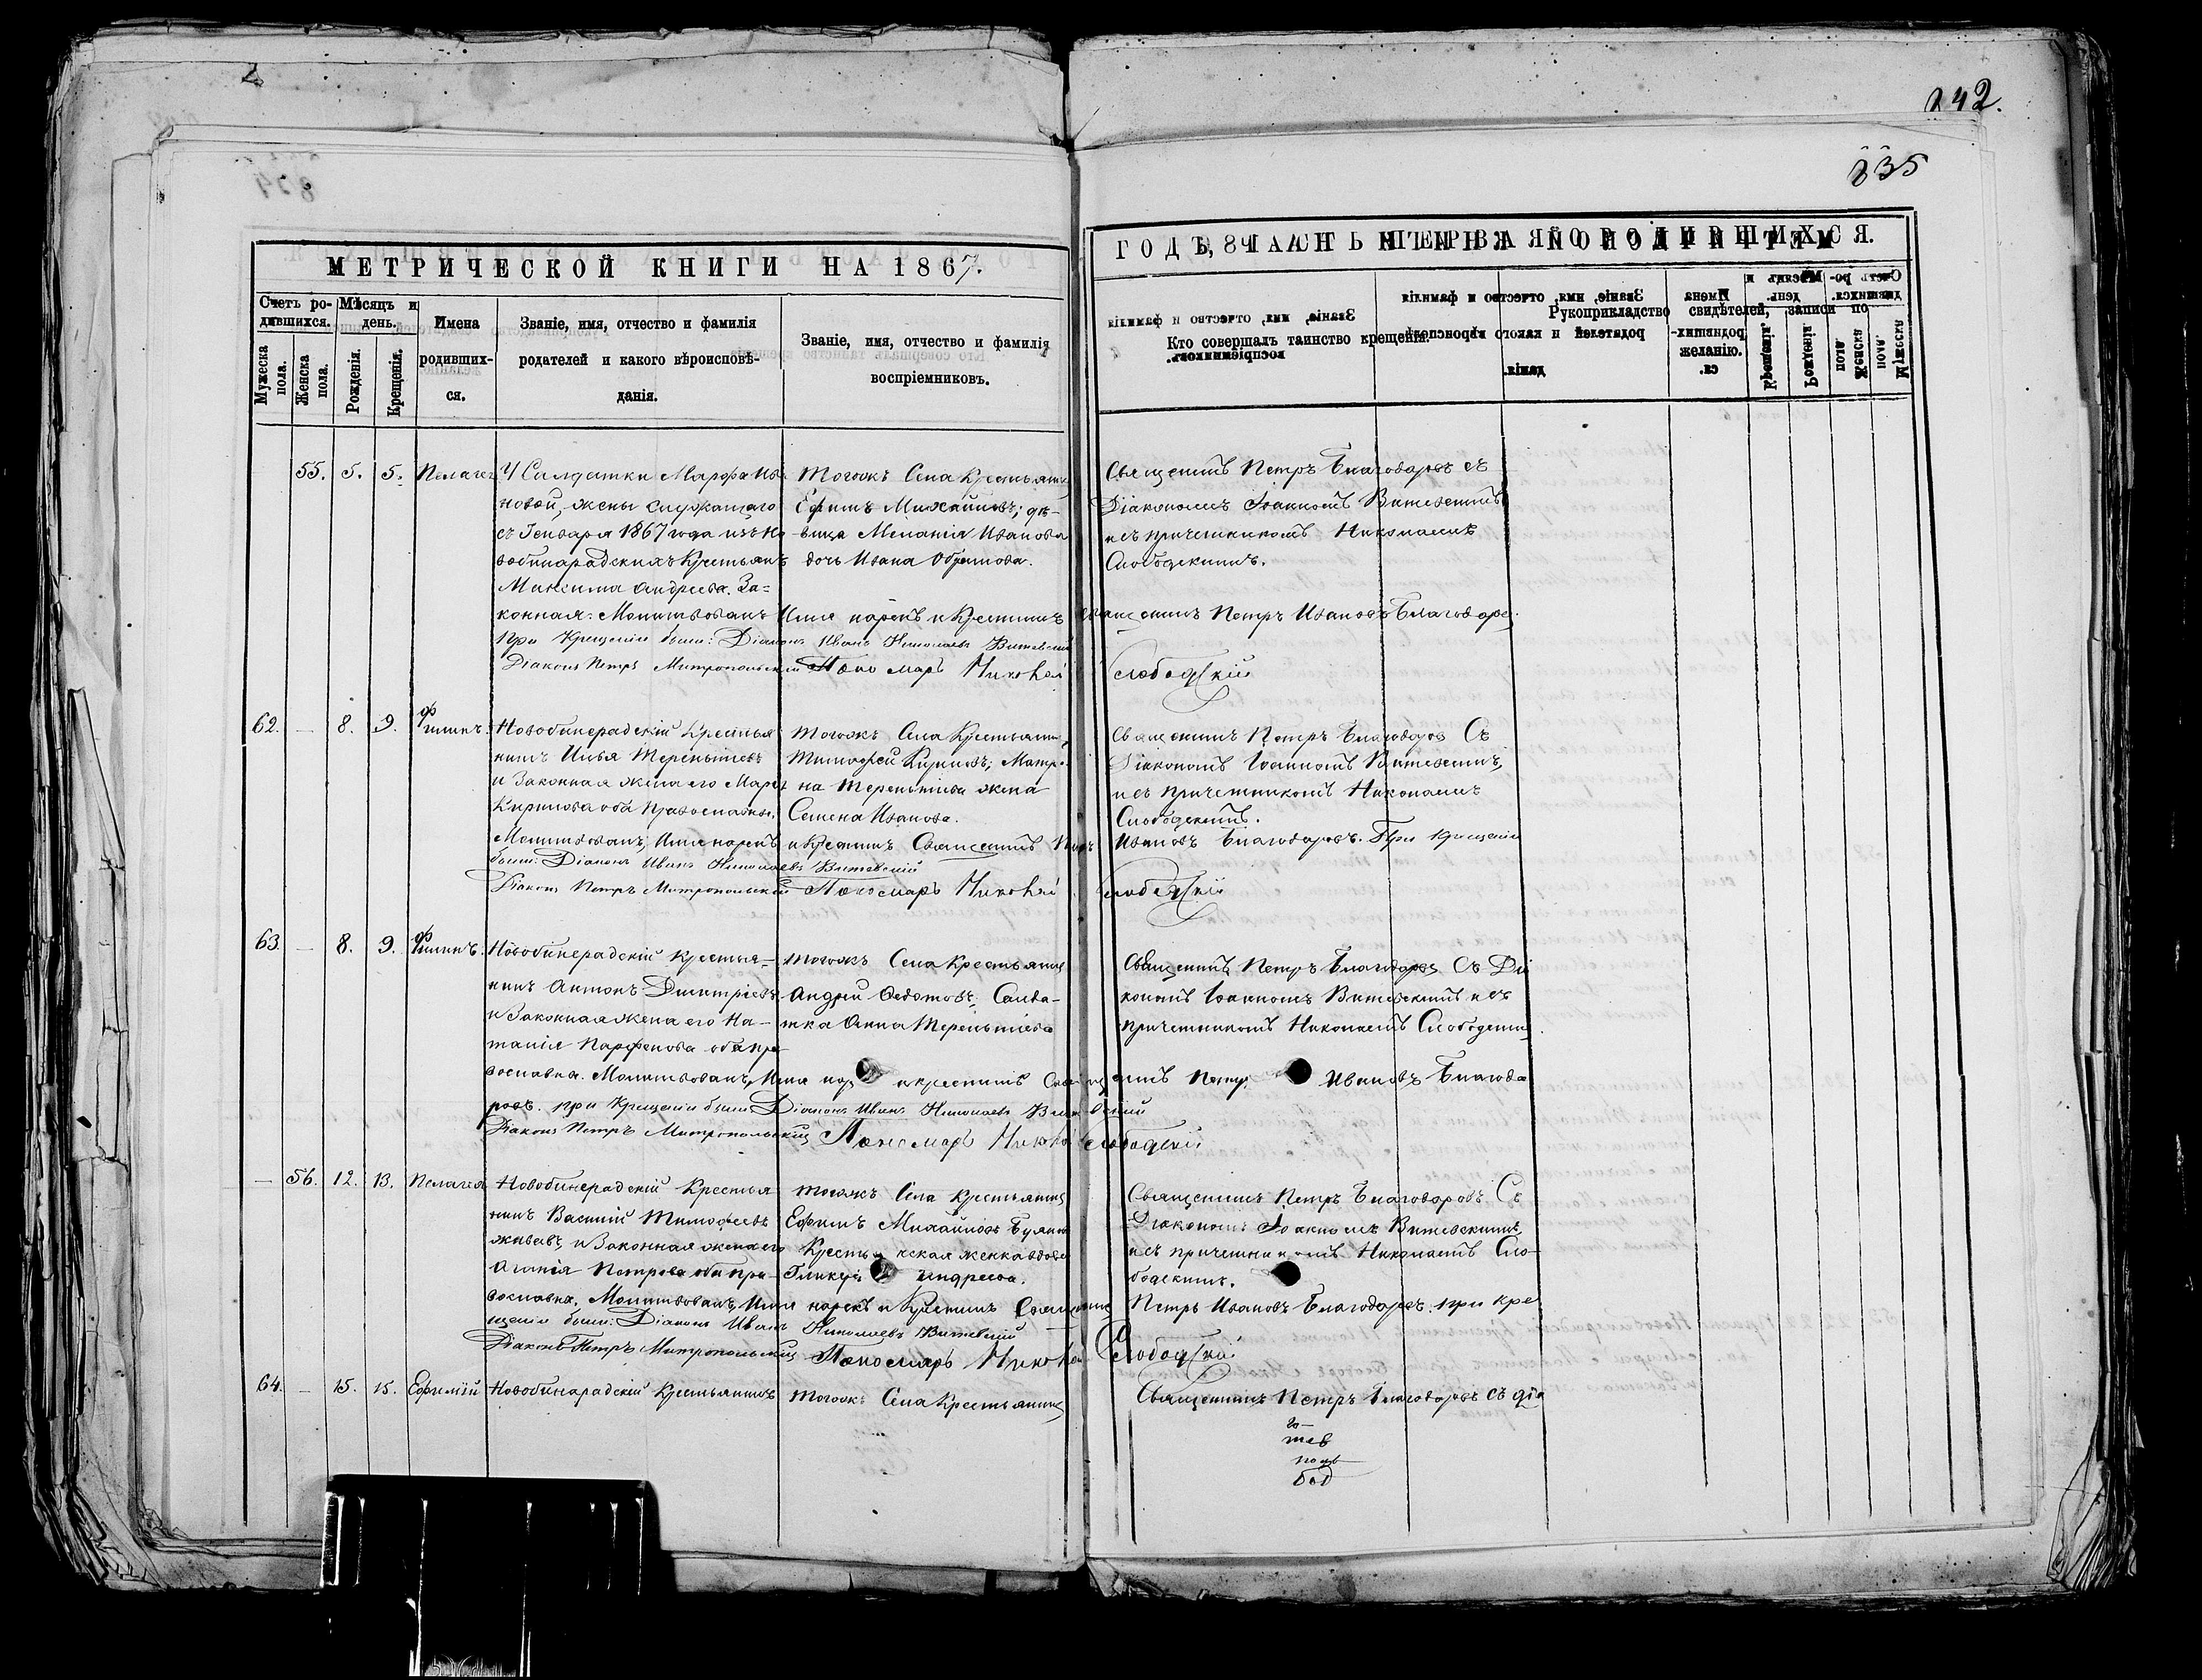 242.
835
МЕТРИЧЕСКОЙ КНИГИ НА 1867.
ГОДЪ, ЧАСТЬ ПЕРВАЯ О РОДИВШИХСЯ.
Счетъ родившихся.
Мужеска пола.
Женска пола.
Мѣсяцъ и день.
Рожденія.
Крещенія.
Имена родившихся.
Званіе, имя, отчество и фамилія родителей и какого вѣроисповѣданія.
Званіе, имя, отчество и фамилія воспріемниковъ.
Кто совершалъ таинство крещенія.
Рукоприкладство свидѣтелей, записи по желанію.
55. 5. 5. Пелагея
У Салдатки Марфы Ива
новой, жены служащаго
съ Генваря 1867 года изъ Но
вобинарадскихъ Крестьянъ
Максима Андреева. За=
конная.
Тогожъ Села Крестьянинъ
Ефимъ Михайловъ; дѣ-
вица Меланія Иванова
дочь Ивана
Священникъ Петръ Благодаровъ съ
Діакономъ Іоанномъ Витевскимъ
и съ причетникомъ Николаемъ
Слободскимъ.
Молитвовалъ Имя нарекъ и Крестилъ Священникъ Петръ Ивановъ Благодаров
При Крещеніи были: Діаконъ Иванъ Николаевъ Витевскій
Діаконъ Петръ Митропольскій Пономарь Николай Слободскій
62. — 8. 9. Филипъ.
Новобинарадскій Крестья
нинъ Илья Терентьевъ
и Законная жена его Марѳа
Кирилова оба Православные,
Тогожъ Села Крестьянинъ
Тимофей Кириловъ; Матре-
на Терентьева жена
Семена Иванова.
Священникъ Петръ Благодаровъ Съ
Діакономъ Іоанномъ Витевскимъ,
и съ причетникомъ Николаемъ
Слободскимъ.
Молитвовалъ, Имя нарекъ и Крестилъ Священникъ Петръ Ивановъ Благодаровъ. При Крещеніи
были: Діаконъ Иванъ Николаевъ Витевскій
Діаконъ Петръ Митропольскій Пономарь Николай Слободскій
63. — 8. 9. Филипъ.
Новобинарадскій Крестья-
нинъ Антонъ Димитріевъ
и Законная жена его На-
талія Парфенова оба пра-
вославна.
Тогожъ Села Крестьянинъ
Андрей Федотовъ; Салда-
тка Анна Терентьева
Священникъ Петръ Благодаровъ Съ Діа
кономъ Іоанномъ Витевскимъ и съ
причетникомъ Николаемъ Слободским.
Молитвовалъ, Имя нар и крестилъ Священникъ Петръ Ивановъ Благода
ровъ. при Крещеніи были Діаконъ Иванъ Николаевъ Витевскій
Діаконъ Петръ Митропольскій Пономарь Николай Слободскій
— 56. 12. 13. Пелагея
Новобинарадскій Крестья
нинъ Василій Тимофеевъ
и Законная жена его
Агафія Петрова оба пра-
вославна,
Тогожъ Села Крестьянинъ
Ефимъ Михайловъ
Крестьянская женка вдова
Гликерія Андреева.
Священникъ Петръ Благодаровъ Съ
Діакономъ Іоанномъ Витевскимъ,
и съ причетникомъ Николаемъ Сло-
бодскимъ.
Молитвовалъ, Имя нарекъ и Крестилъ Священникъ Петръ Ивановъ Благодаровъ. при Кре
щеніи были: Діаконъ Иванъ Николаевъ Витевскій
Діаконъ Петръ Митропольскій Пономарь Николай Слободскій
64. — 15. 15. Ефимій
Новобинарадскій Крестьянинъ
Тогожъ Села Крестьянинъ
Священникъ Петръ Благодаровъ съ діа